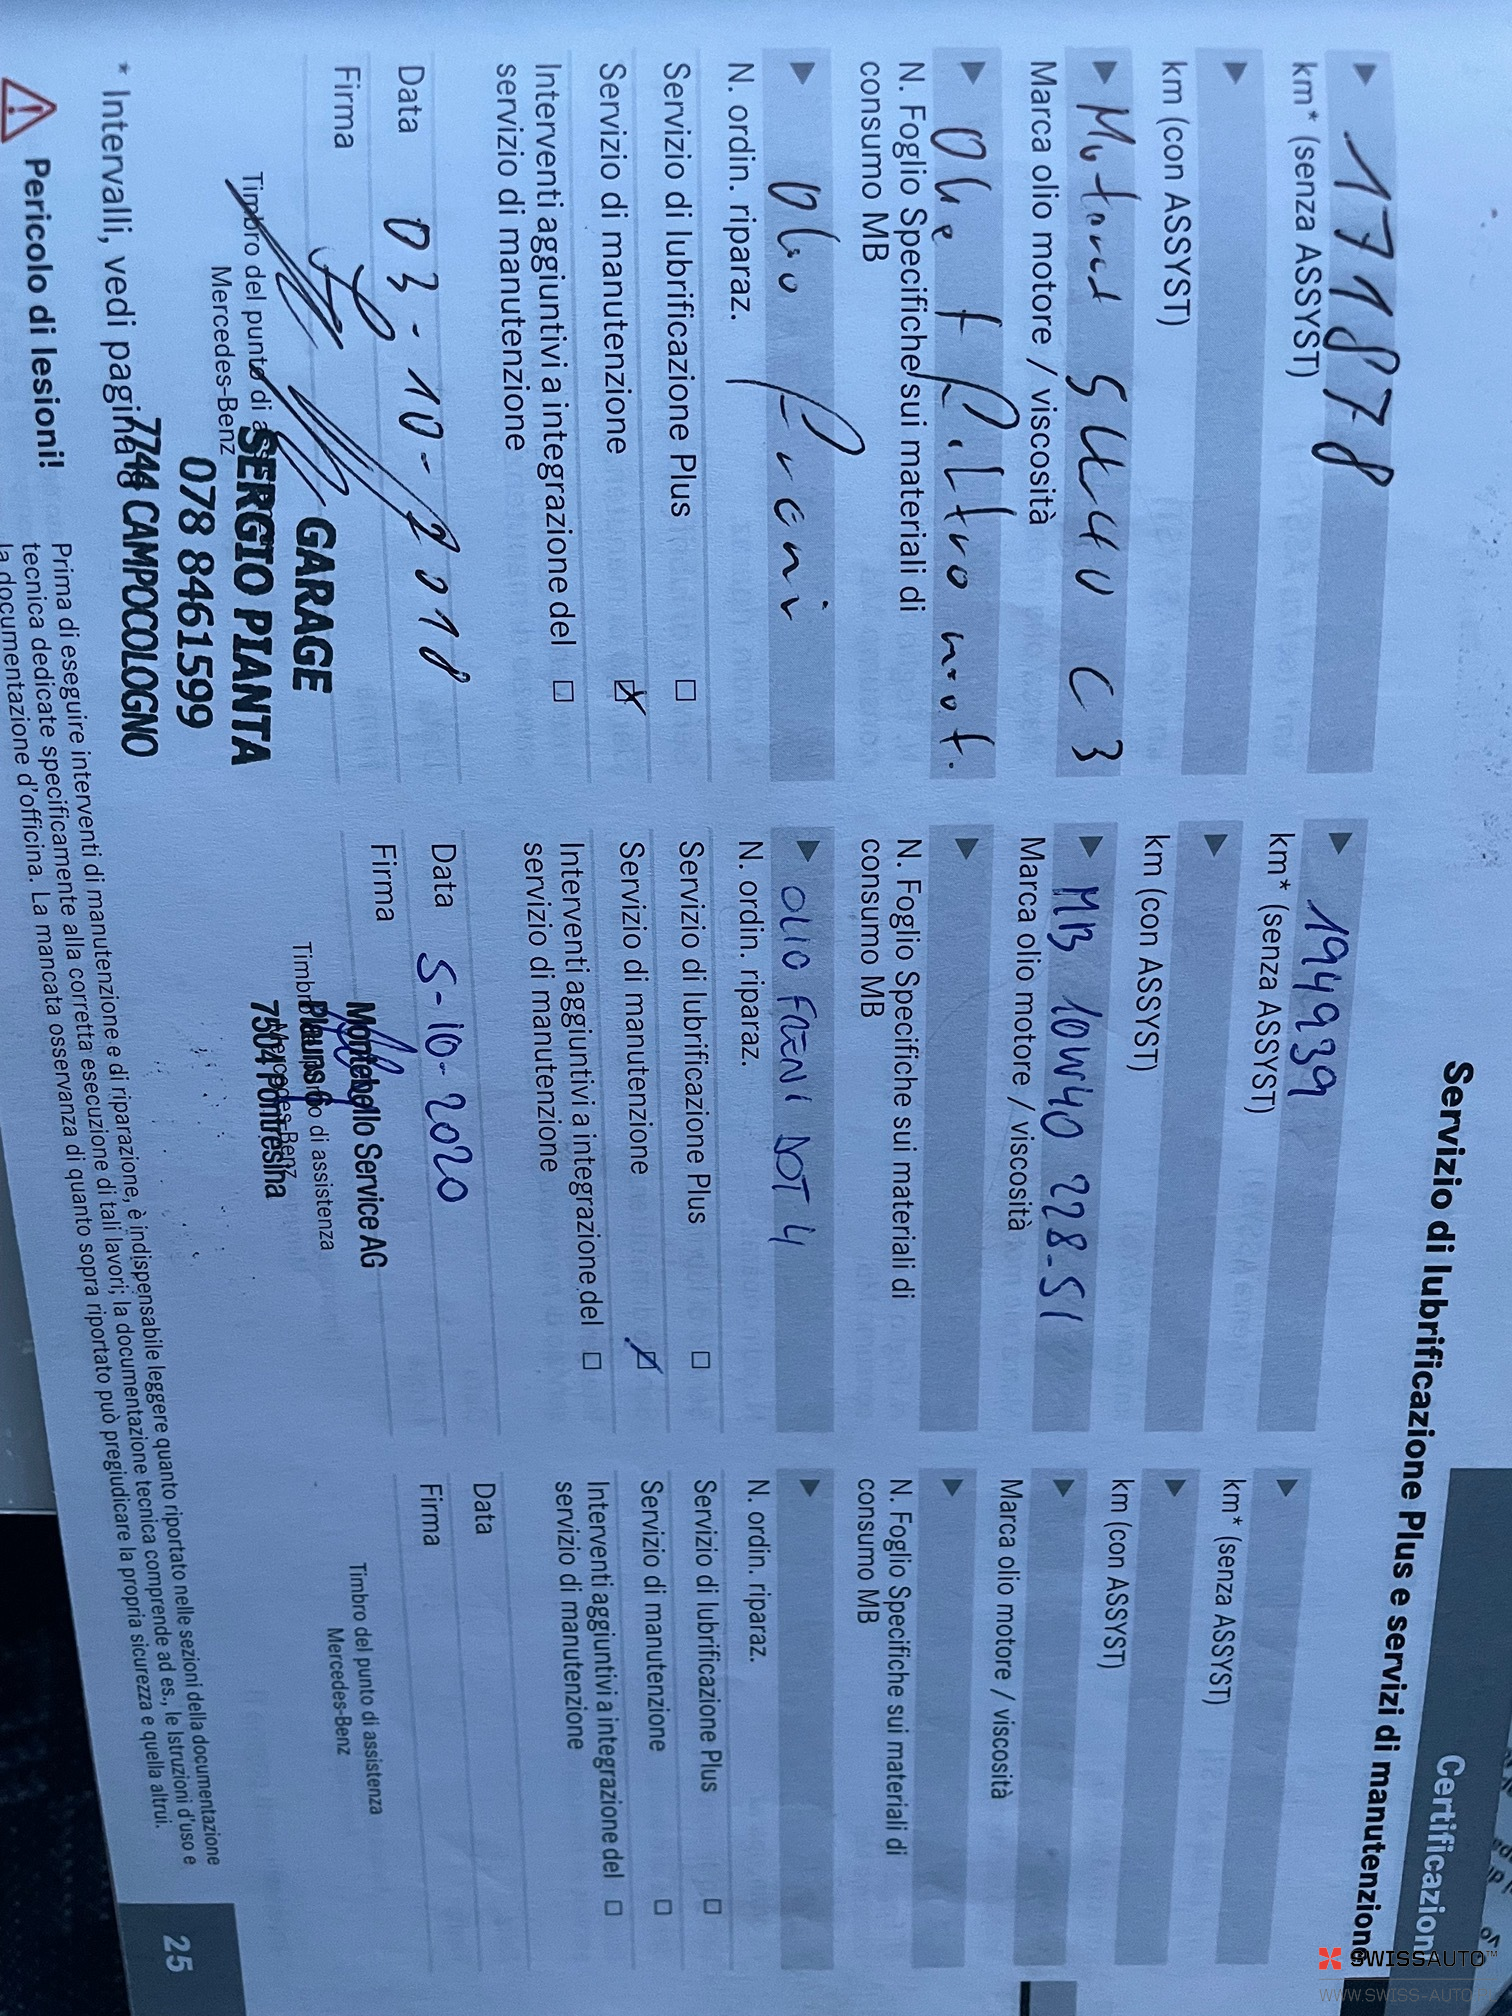 Certificazioni
Servizio di lubrificazione Plus e servizi di manutenzione
171878
km* (senza ASSYST)
km (con ASSYST)
5W40 C3
Marca olio motore / viscosità
Olio + Filtro mot.
N. Foglio Specifiche sui materiali di
consumo MB
Olio Freni
N. ordin. riparaz.
Servizio di lubrificazione Plus
Servizio di manutenzione
Interventi aggiuntivi a integrazione del
servizio di manutenzione
Data 03-10-2018
Firma
Timbro del punto di
Mercedes-Benz
GARAGE
SERGIO PIANTA
078 8461599
7744 CAMPOCOLOGNO
194939
km* (senza ASSYST)
km (con ASSYST)
MB 10W40 228-51
Marca olio motore / viscosità
N. Foglio Specifiche sui materiali di
consumo MB
OLIO FRENI DOT 4
N. ordin. riparaz.
Servizio di lubrificazione Plus
Servizio di manutenzione
Interventi aggiuntivi a integrazione del
servizio di manutenzione
Data 5-10-2020
Firma
Montebello Service AG
Plauns 6
7504 Pontresina
di assistenza
Mercedes-Benz
km* (senza ASSYST)
km (con ASSYST)
Marca olio motore / viscosità
N. Foglio Specifiche sui materiali di
consumo MB
N. ordin. riparaz.
Servizio di lubrificazione Plus
Servizio di manutenzione
Interventi aggiuntivi a integrazione del
servizio di manutenzione
Data
Firma
Timbro del punto di assistenza
Mercedes-Benz
* Intervalli, vedi pagina
Pericolo di lesioni!
Prima di eseguire interventi di manutenzione e di riparazione, è indispensabile leggere quanto riportato nelle sezioni della documentazione
tecnica dedicate specificamente alla corretta esecuzione di tali lavori; la documentazione tecnica comprende ad es., le Istruzioni d'uso e
la documentazione d'officina. La mancata osservanza di quanto sopra riportato può pregiudicare la propria sicurezza e quella altrui.
25
SWISSAUTO™